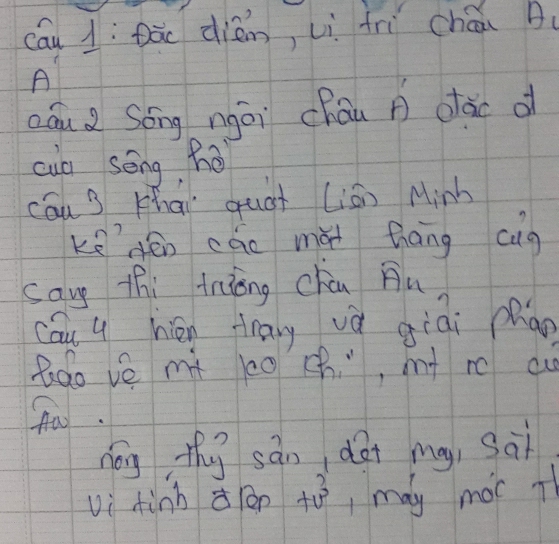 Câu 1: Đặc điểm, vị trí châu Âu
Á
câu 2 Sông ngòi châu Á đặc đ
của sông, hồ
câu 3 khái quát Liên Minh
kể tên các mặt hàng của
sang thị trường châu Âu
Câu 4 hiện trạng và giải pháp
bảo vệ mt ko khí, mt nc
Âu.
nông thủy sản, dệt may, sắt
vi tính điện tử, máy móc